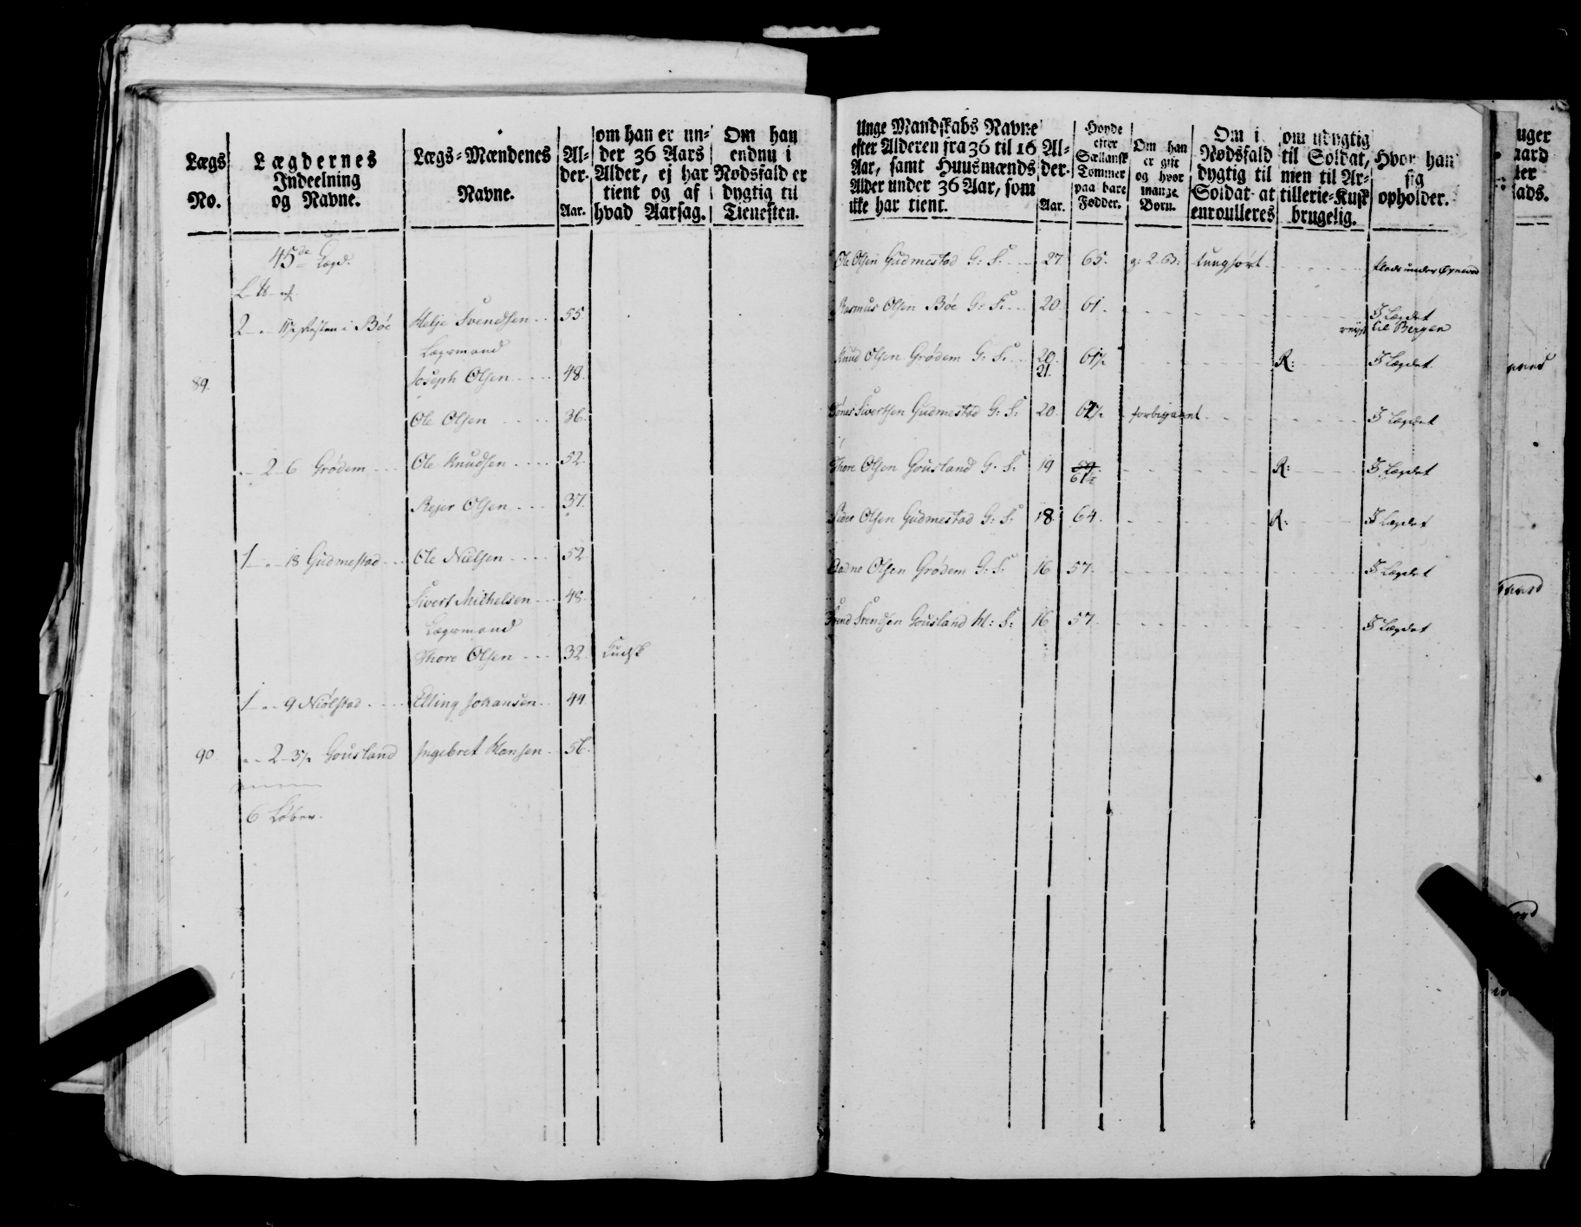 Lægs No.
Lægdernes Indeelning og Navne.
Lægs-Mændenes Navne.
Al-der. Aar.
om han er un-
der 36 Aars
Alder, ej har
tient og af
hvad Aarsag.
Om han
endnu i
Nødsfald er
dygtig til
Tienesten.
45de Lægd.
2 - Böe Helje Svendsen 55
Lægsmand
89. Joseph Olsen 48.
Ole Olsen 36.
- 2 - 6 Grödem Ole Knudsen 52.
Rejer Olsen 37.
1 - - 18 Gudmestad Ole Nielsen 52
Sivert Michelsen 48.
Lægsmand
Thore Olsen 32.
1 - - 9 Niölstad Elling Johansen 44
90 - - 2 - 3½ Gousland Ingebret Hansen 56.
6 Löber.
Unge Mandskabs Navne
efter Alderen fra 36 til 16
Aar, samt Huusmænds
Alder under 36 Aar, som
ikke har tient.
Al-
der.
Aar.
Høyde
efter
Sællansk
Tommer
paa bare
Fødder.
Om han
er gift
og hvor
mange
Børn.
Om i
Nødsfald
dygtig til
Soldat at
enroulleres
om udygtig
til Soldat,
men til Ar-
tillerie-Kusk
brugelig.
Hvor han
sig
opholder.
Ole Olsen Gudmestad G: S. 27. 65. g: 2 B: tunghört
Rasmus Olsen Böe G: S. 20. 61. I Lægdet
reist til Bergen
Knud Olsen Grödem G: S. 20. 21. 61½ R: I Lægdet
Sivertsen Gudmestad G: S. 20. forbigaaet I Lægdet
Thore Olsen Gousland G: S. 19 R: I Lægdet
Olsen Gudmestad G: S. 18. 64. R: I Lægdet
Olsen Grödem G: S. 16 57. I Lægdet
Svend Svendsen Gousland H: S: 16 57. I Lægdet